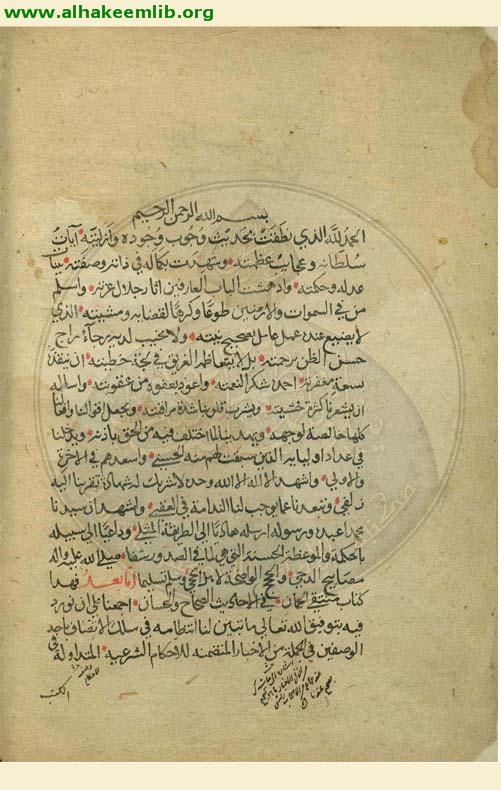 www.alhakeemlib.org
بسم الله الرحمن الرحيم
الحمد لله الذي نطقت بحديث وجوب وجوده وازليته آيات
سلطانه وعجايب عظمته وشهدت بكماله في ذاته وصفته بينات
عدله وحكمته وادهشت الباب العارفين اثار جلال عزته واسلم
من في السموات والارضين طوعا وكرها لقضايه ومشيته الذي
لا يضيع عنده عمل عامل بصحيح نيته ولا يخيب لديه رجاء راج
حسن الظن برحمته بل لا يتعاظم الغريق في لجة خطيئته ان ينقذ
بسعة مغفرته احمده شكرا لنعمته واعوذ بعفوه من عقوبته واساله
ان يشعرنا كثرة خشيته ويشرب قلوبنا شدة مراقبته ويجعل اقوالنا وافعالنا
كلها خالصة لوجهه ويهدينا لما اختلف فيه من الحق باذنه ويدخلنا
في عداد اوليايه الذين سبقت لهم منه الحسنى واسعدهم في الاخرة
والاولى واشهد ان لا اله الا الله وحده لا شريك له شهادة تقربنا اليه
زلفى وتبعد عنا ما يوجب لنا الندامة في العقبى واشهد ان سيدنا
محمدا عبده ورسوله ارسله هاديا الى الطريقة المثلى وداعيا الى سبيله
بالحكمة والموعظة الحسنة التي هي لما في الصدور شفا صلى الله عليه واله
مصابيح الدجى والحجج الواضحة لاهل الحجى وسلم تسليما اما بعد فهذا
كتاب منتقى الجمان في الاحاديث الصحاح والحسان اجمعنا على ان نورد
فيه بتوفيق الله تعالى ما تبين لنا انتظامه في سلك الاتصاف باحد
الوصفين في الجملة من الاخبار المتضمنة للاحكام الشرعية المتداولة في
الكتب